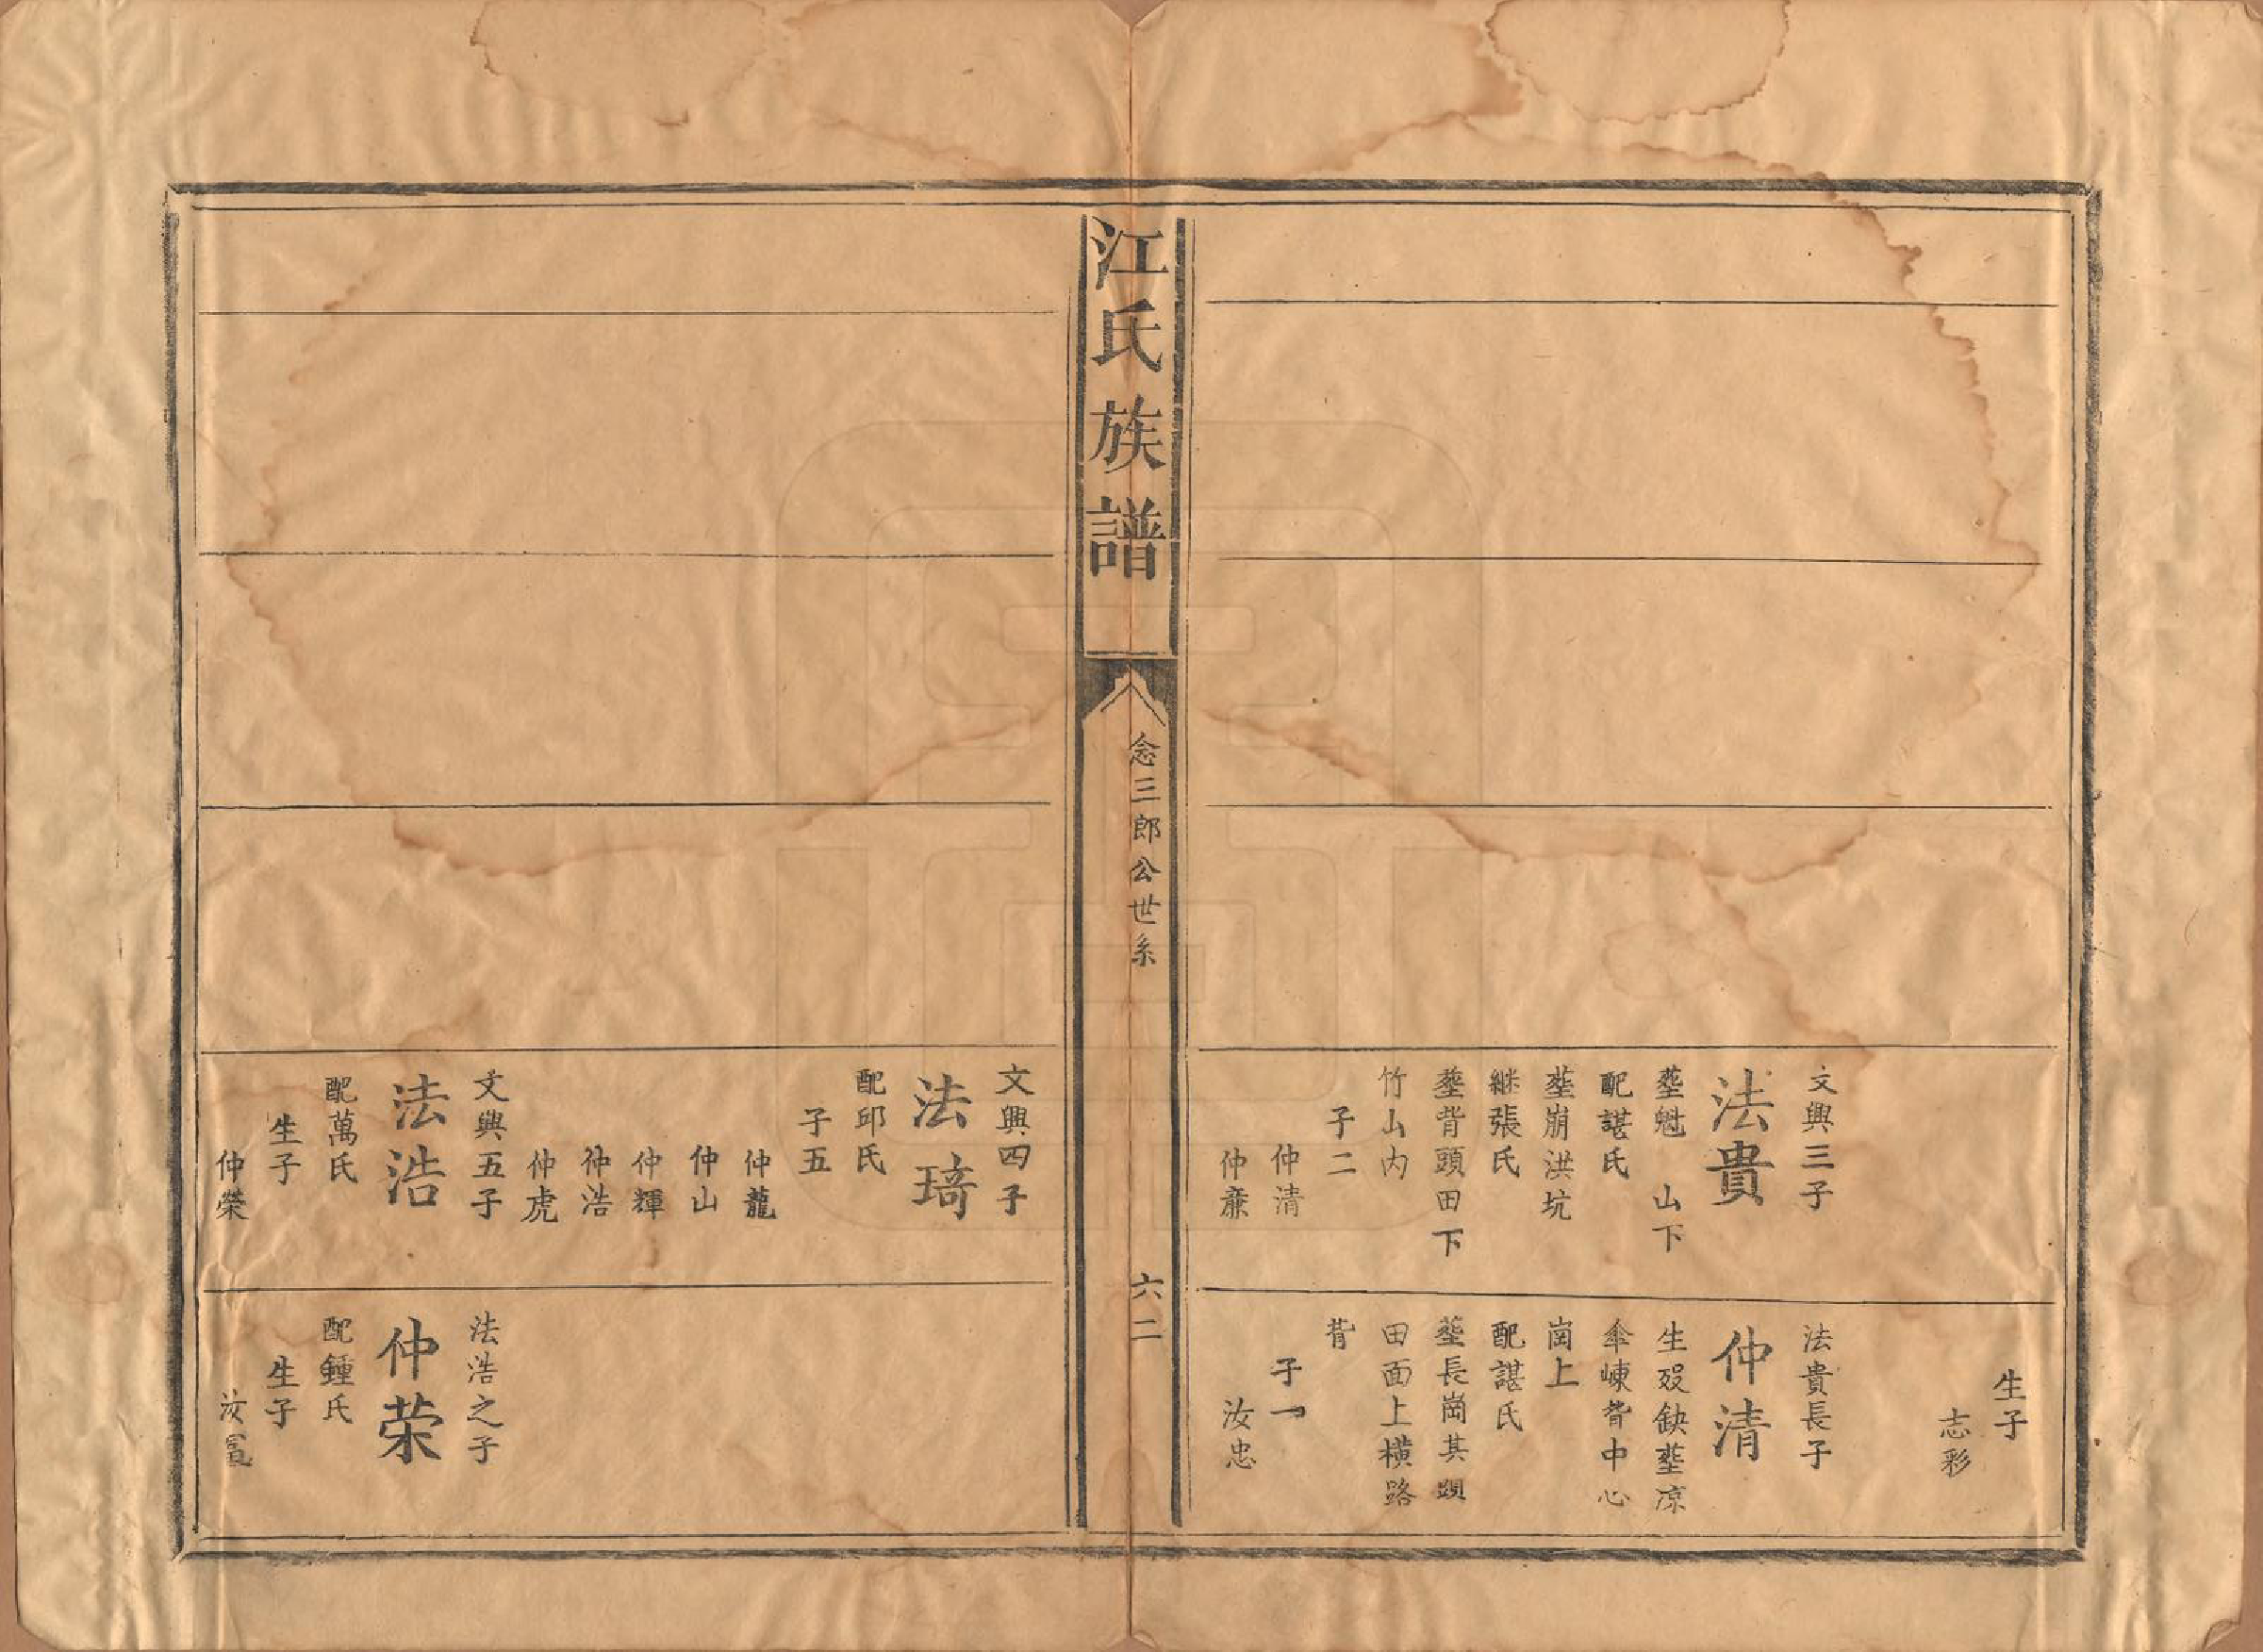 生子
志彩
文興三子
法貴
塟魁 山下
配諶氏
塟崩洪坑
継張氏
塟背頭田下
竹山內
子二
仲清
仲亷
法貴長子
仲清
生殁缺塟凉
傘崠背中心
崗上
配諶氏
塟長崗其頭
田面上橫路
背
子一
汝忠
江氏族譜
念三郎公世系
六二
文興四子
法琦
配邱氏
子五
仲龍
仲山
仲輝
仲浩
仲虎
文興五子
法浩
配萬氏
生子
仲榮
法浩之子
仲荣
配鍾氏
生子
汝富